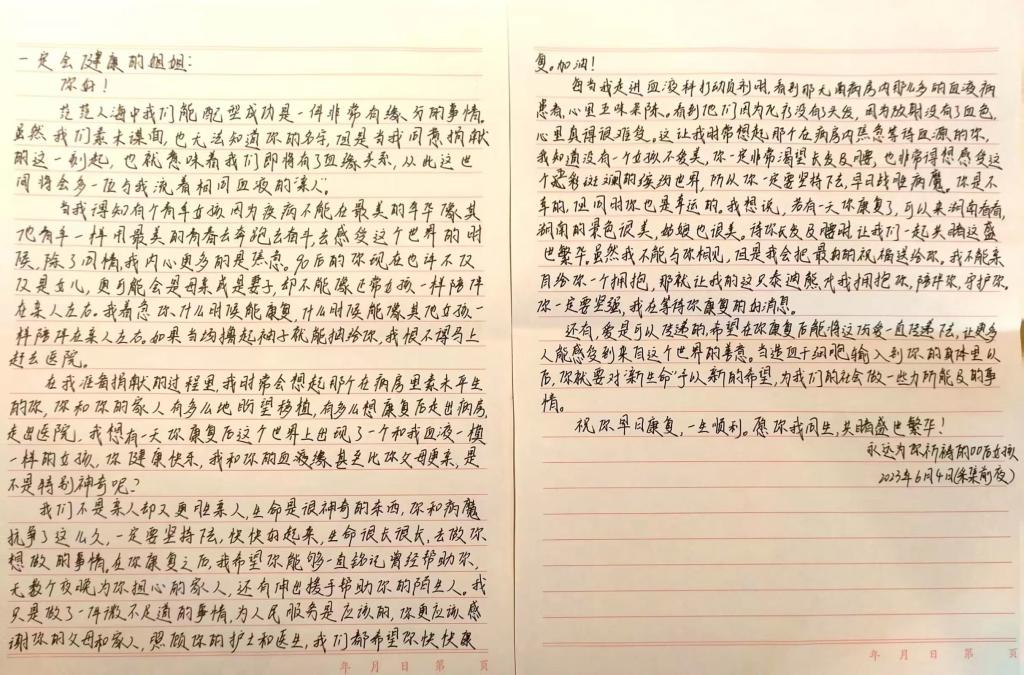 一定会健康的姐姐:
你好!
茫茫人海中我们能配型成功是一件非常有缘分的事情。
虽然我们素未谋面,也无法知道你的名字,但是当我同意捐献
的这一刻起,也就意味着我们即将有了血缘关系,从此这世
间将会多一位与我流着相同血液的“亲人”。
当我得知有个青年女孩因为疾病不能在最美的年华像其
他青年一样用最美的青春去奔跑去奋斗去感受这个世界的时
候,除了同情,我内心更多的是焦急。90后的你现在也许不仅
仅是女儿,更可能会是母亲或是妻子,却不能像正常女孩一样陪伴
在亲人左右。我着急你什么时候能康复,什么时候能像其他女孩一
样陪伴在亲人左右。如果当场撸起袖子就能抽给你,我恨不得马上
赶去医院。
在我准备捐献的过程里,我时常会想起那个在病房里素未平生
的你,你和你的家人有多么地盼望移植,有多么想康复后走出病房,
走出医院,我想有一天你康复后这个世界上出现了一个和我血液一模
一样的女孩,你健康快乐,我和你的血液缘甚至比你父母更亲,是
不是特别神奇呢?
我们不是亲人却又更胜亲人,生命是很神奇的东西,你和病魔
抗争了这么久,一定要坚持下去,快快好起来,生命很长很长,去做你
想做的事情。在你康复之后,我希望你能够一直铭记曾经帮助你,
无数个夜晚为你担心的家人,还有伸出援手帮助你的陌生人。我
只是做了一件微不足道的事情,为人民服务是应该的,你更应该感
谢你的父母和家人,照顾你的护士和医生,我们都希望你快快康
复。加油!
每当我走进血液科打动员剂时,看到那无菌病房内那么多的血液病
患者,心里五味杂陈。看到他们因为化疗没有了头发,因为放射没有了血色,
心里真得很难受。这让我时常想起那个在病房内焦急等待血源的你,
我知道没有一个女孩不爱美,你一定非常渴望长发及腰,也非常得想感受这
个色彩斑斓的缤纷世界,所以你一定要坚持下去,早日战胜病魔。你是不
幸的,但同时你也是幸运的。我想说,若有一天你康复了,可以来湖南看看,
湖南的景色很美,姑娘也很美。待你长发及腰时让我们一起共睹这盛
世繁华。虽然我不能与你相见,但是我会把最好的祝福送给你。我不能亲
自给你一个拥抱,那就让我的这只泰迪熊代我拥抱你,陪伴你,守护你。
你一定要坚强,我在等待你康复的好消息。
还有,爱是可以传递的,希望在你康复后能将这份爱一直传递下去,让更多
人能感受到来自这个世界的善意。当造血干细胞输入到你的身体里以
后,你就要对“新生命”予以新的希望,为我们的社会做一些力所能及的事
情。
祝你早日康复,一生顺利。愿你我同生,共睹盛世繁华!
永远为你祈祷的00后女孩
2023年6月4日(采集前夜)
年 月 日 第 页
年 月 日 第 页